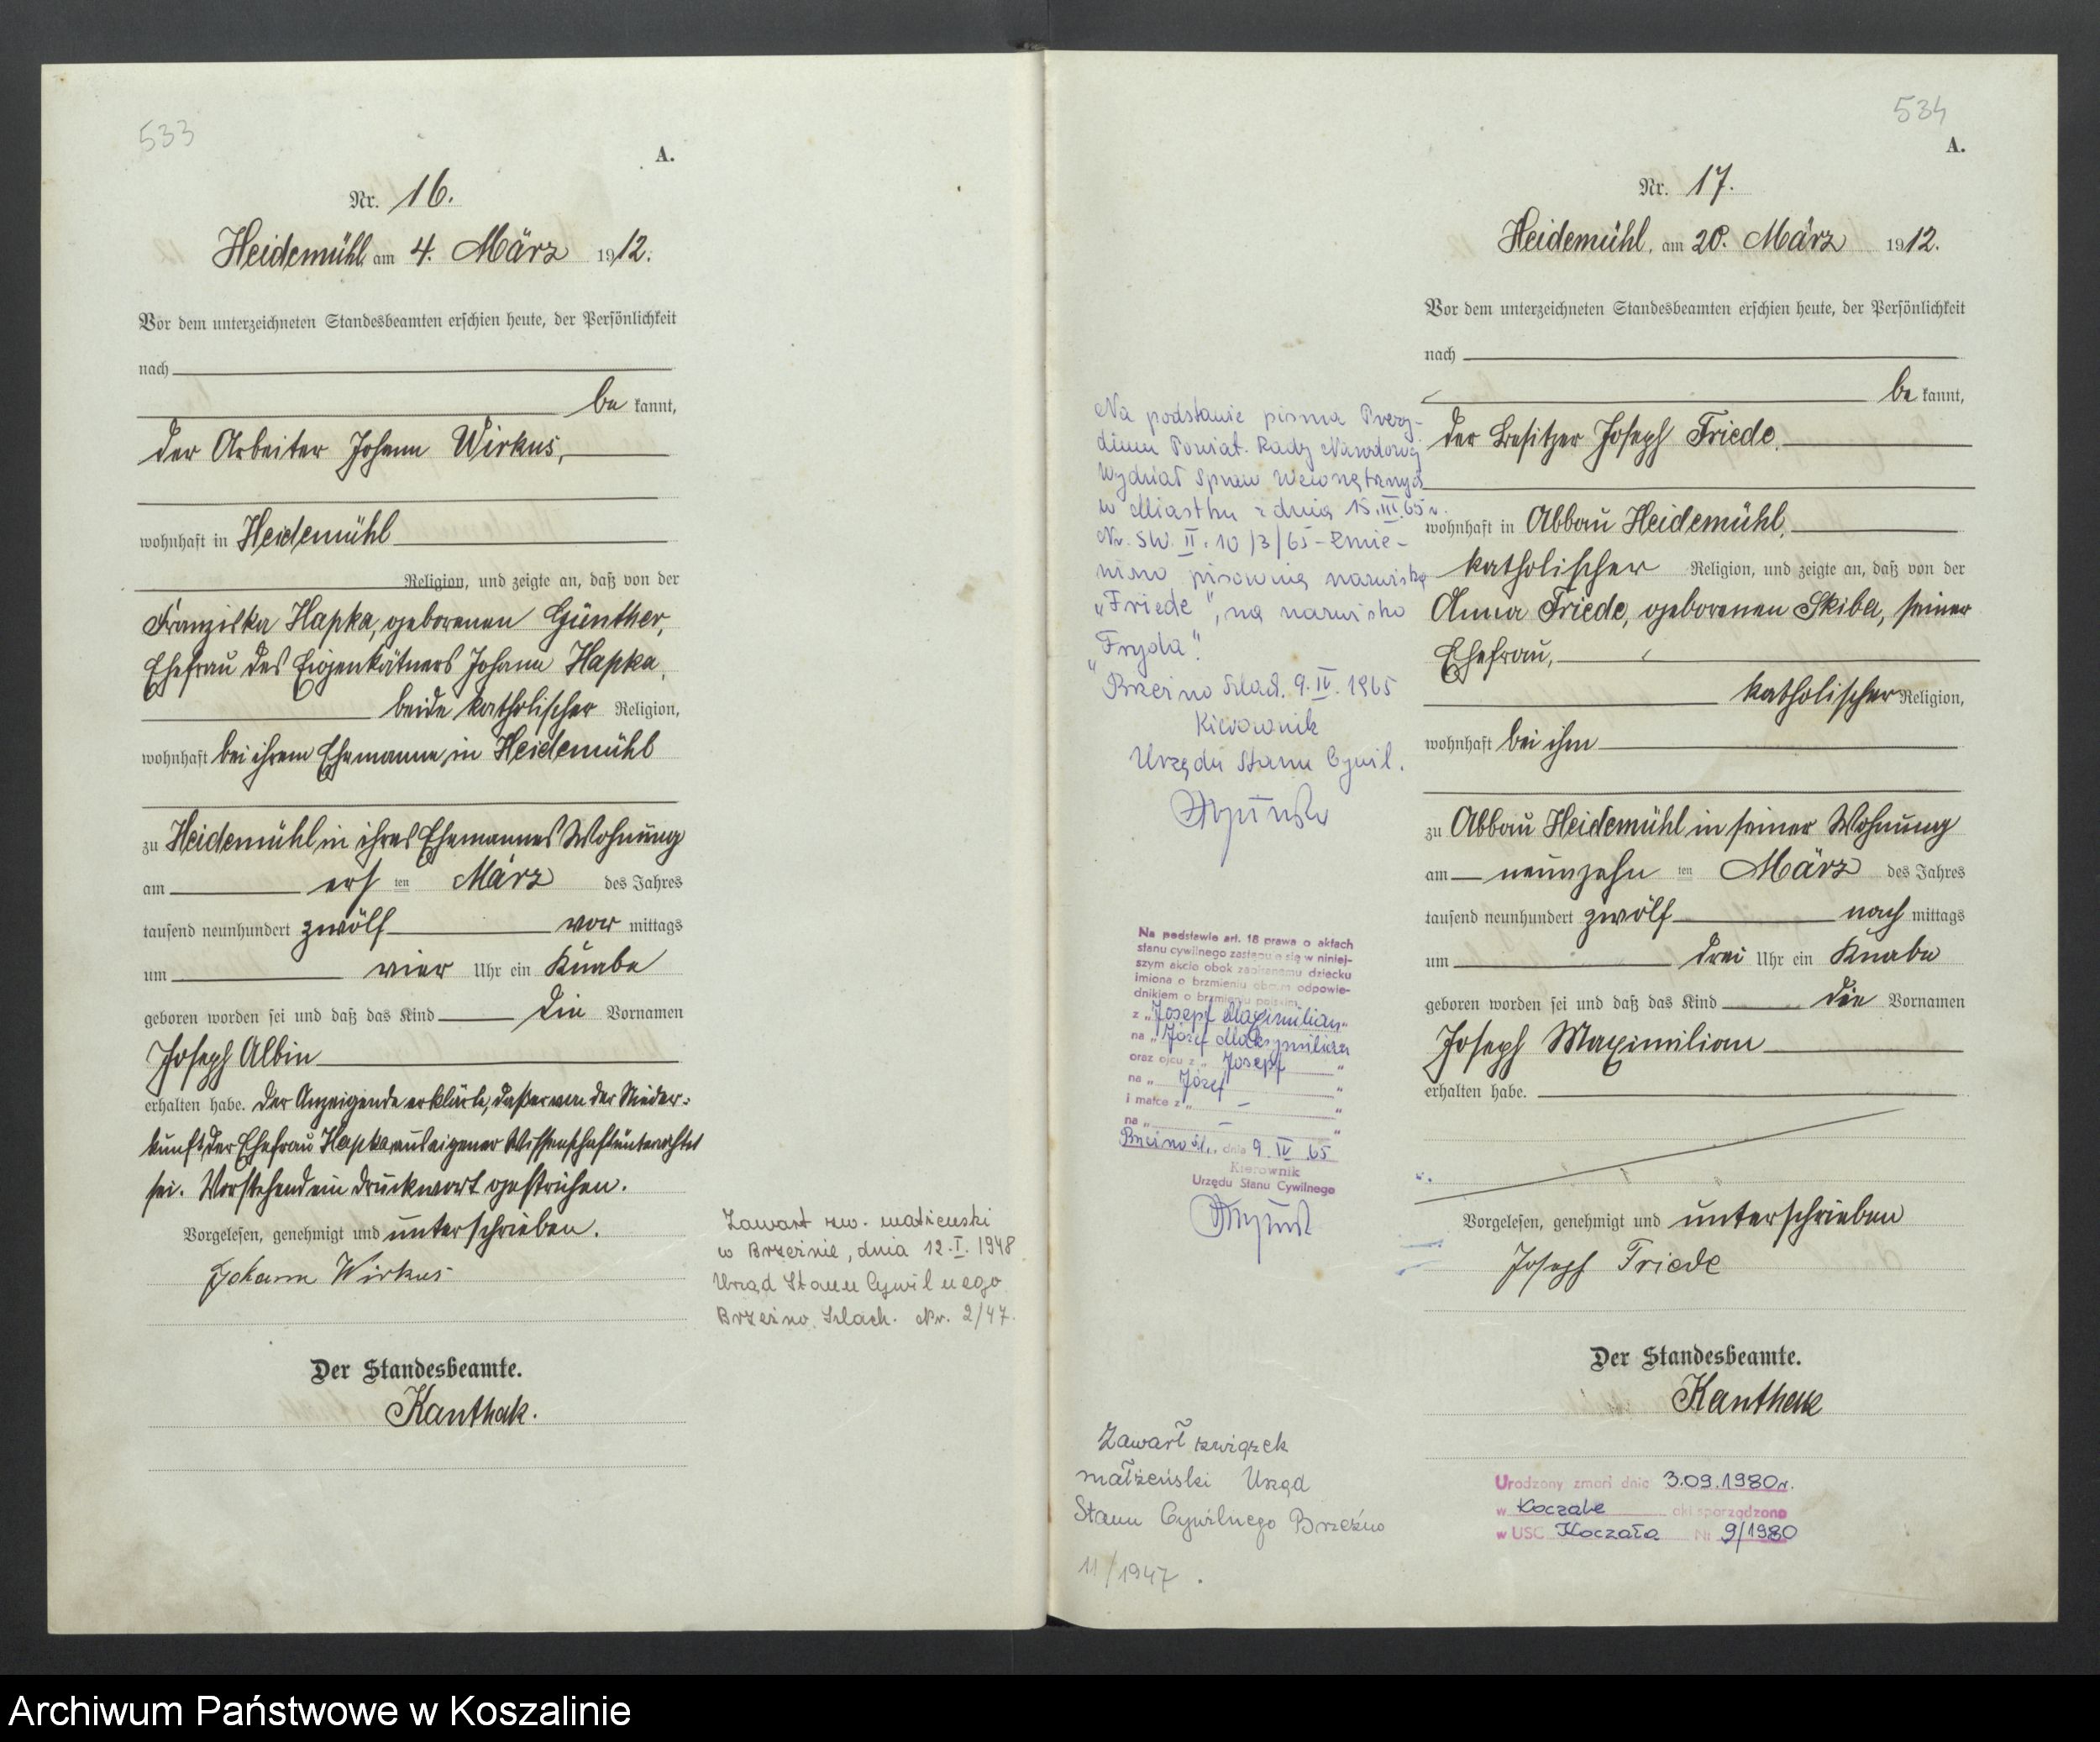 533
A.
Nr. 16.
Heidemühl, am 4. März 1912.
Vor dem unterzeichneten Standesbeamten erschien heute, der Persönlichkeit
nach
be kannt,
der Arbeiter Johann Wirkus,
wohnhaft in Heidemühl
Religion, und zeigte an, daß von der
Franziska Hapka, geborenen Günther,
Ehefrau des Eigenkätners Johann Hapka,
beide katholischer Religion,
wohnhaft bei ihrem Ehemanne in Heidemühl
zu Heidemühl in ihres Ehemannes Wohnung
am ersten März des Jahres
tausend neunhundert zwölf vor mittags
um vier Uhr ein Knabe
geboren worden sei und daß das Kind die Vornamen
Joseph Albin
erhalten habe. Der Anzeigende erklärte, daß er von der Nieder-
kunft der Ehefrau Hapka aus eigener Wissenschaft unterrichtet
sei. Vorstehend ein Druckwort gestrichen.
Vorgelesen, genehmigt und unterschrieben.
Johann Wirkus
Der Standesbeamte.
Kanthak.
Zawarł zw. małżeński
w Brzeźnie, dnia 12.I.1948
Urząd Stanu Cywilnego
Brzeźno Szlach. Nr. 2/47.
534
A.
Nr. 17.
Heidemühl, am 20. März 1912.
Vor dem unterzeichneten Standesbeamten erschien heute, der Persönlichkeit
nach
be kannt,
der Besitzer Joseph Friede,
wohnhaft in Abbau Heidemühl,
katholischer Religion, und zeigte an, daß von der
Anna Friede, geborenen Skiba, seiner
Ehefrau,
katholischer Religion,
wohnhaft bei ihm
zu Abbau Heidemühl in seiner Wohnung
am neunzehn ten März des Jahres
tausend neunhundert zwölf nach mittags
um drei Uhr ein Knabe
geboren worden sei und daß das Kind die Vornamen
Joseph Maximilian
erhalten habe.
Vorgelesen, genehmigt und unterschrieben
Joseph Friede
Der Standesbeamte.
Kanthak
Na podstawie pisma Prezy-
dium Powiat. Rady Narodowej
Wydział Spraw Wewnętrznych
w Miastku z dnia 15.III.65 r.
Nr. SW. II. 10/3/65 - zmie-
niono pisownię nazwiska
„Friede", na nazwisko
"Fryda".
Brzeźno Szlach. 9.IV.1965
Kierownik
Urzędu Stanu Cywil.
Na podstawie art. 18 prawa o aktach
stanu cywilnego zastępuje się w niniej-
szym akcie obok zapisanemu dziecku
imiona o brzmieniu obcym odpowie-
dnikiem o brzmieniu polskim.
z „Josepf Maximilian"
na „Józef Maksymilian
oraz ojcu z „ Josepf "
na „ Józef "
i matce z „ – "
na „ – "
Brzeźno Sl., dnia 9.IV 65
Kierownik
Urzędu Stanu Cywilnego
Zawarł związek
małżeński Urząd
Stanu Cywilnego Brzeźno
11/1947.
Urodzony zmarł dnia 3.09.1980r.
w Koczale akt sporządzono
w USC Koczała Nr 9/1980
Archiwum Państwowe w Koszalinie